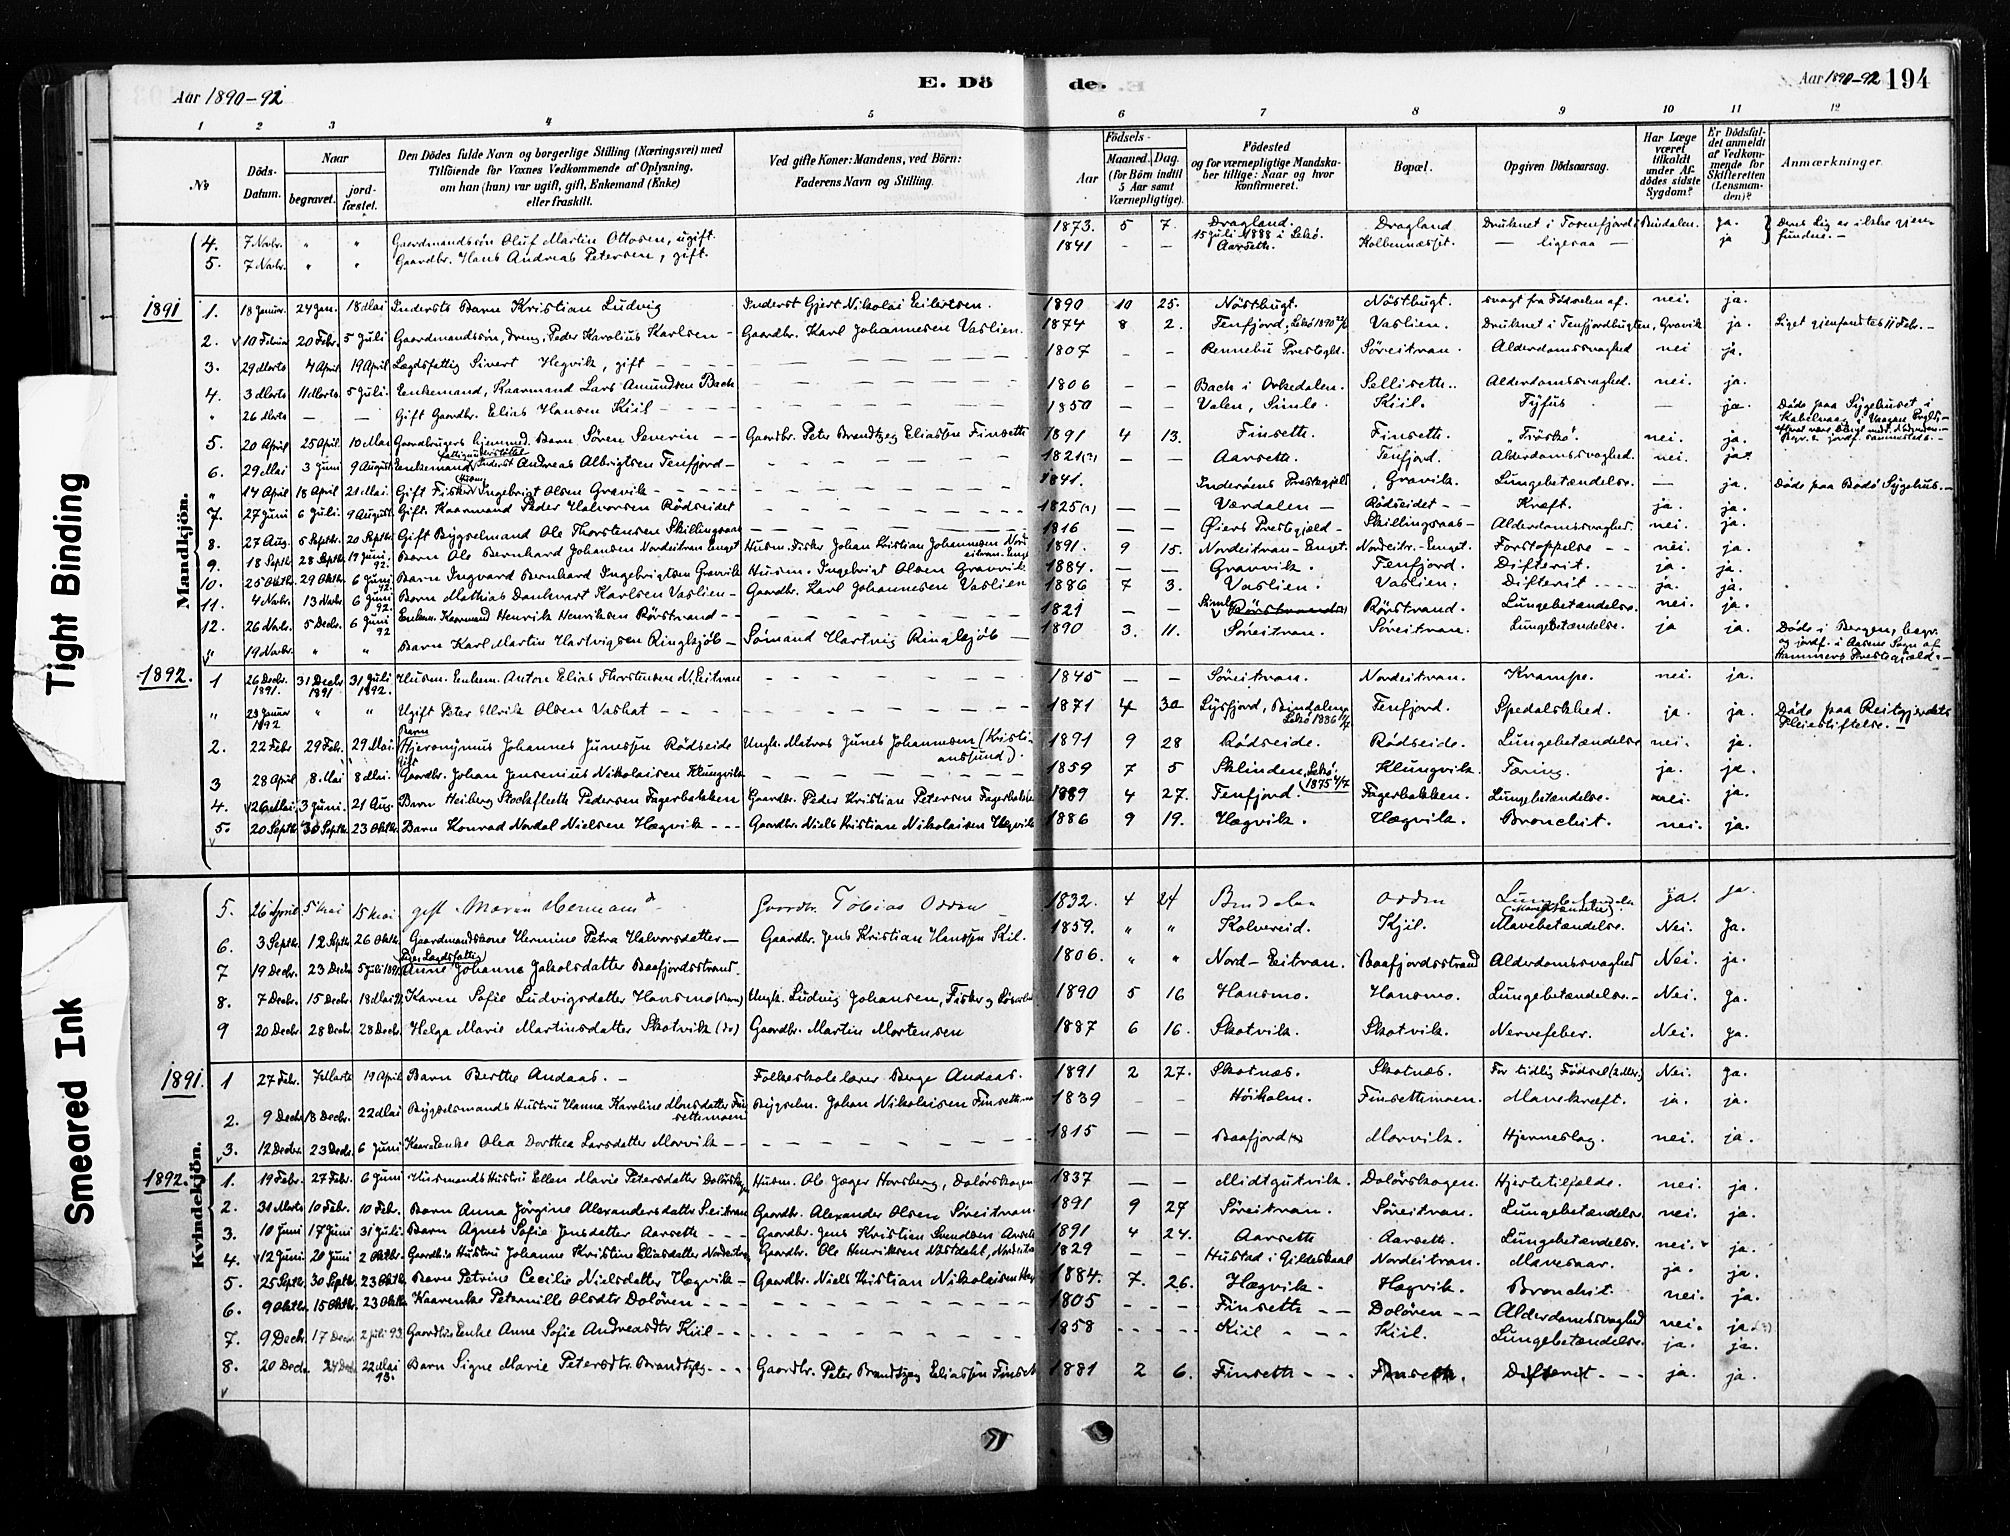 Aar 1890-92
E. Dö
de.
Aar 1890-92 194
1 2 3 4 5 6 7 8 9 10 11 12
No
Döds-Datum.
Naar
begravet.
jord-fæstet.
Den Dödes fulde Navn og borgerlige Stilling (Næringsvei) med Tilföiende for Voxnes Vedkommende af Oplysning, om han (hun) var ugift, gift, Enkemand (Enke) eller fraskilt.
Ved gifte Koner: Mandens, ved Börn: Faderens Navn og Stilling.
Födsels-
Aar
Maaned. Dag.
(for Börn indtil 5 Aar samt Værnepligtige).
Födested og for værnepligtige Mandskaber tillige: Naar og hvor konfirmeret.
Bopæl.
Opgiven Dödsaarsag.
Har Læge været tilkaldt under Afdödes sidste Sygdom?
Er Dödsfaldet anmeldt af Vedkommende for Skifteretten (Lensmanden)?
Anmærkninger.
Mandkjön.
4. 7 Novbr. " " Gaardmandssön Oluf Martin Ottosen, ugift. 1873. 5 7. Dragland. 15 Juli 1888 i Lekö. Dragland Druknet i Torenfjord i Bindalen. ja. Deres Lig er ikke gjenfundne. —
5. 7 Novbr. " " Gaardbr. Hans Andreas Petersen, gift. 1841 — — Aarseth. — ligesaa — ja
1891
1. 18 Januar. 24 Jan. 18 Mai Indersts Barn Kristian Ludvig Inderst Gjert Nikolai Eilertsen. 1890 10 25. Nöstbugt. Nöstbugt. svagt fra Födselen af. nei. ja.
2. 10 Februar 20 Febr. 5 Juli Gaardmandssön, dreng, Peder Karolius Karlsen — Gaardbr. Karl Johannesen Vaslien. 1874 8 2. Tenfjord, Lekö 1890 Vaslien. Druknet i Tenfjordbugten, Gravik ja. Liget gjenfandtes 11 Febr. —
3. 29 Marts 4 April 19 April Lægdsfattig Sivert Hegvik, gift — — — 1807 — — Rennebu Prestegld. Söreitran. Alderdomssvaghed nei ja.
4. 3 Marts 11 Marts 5 Juli. Enkemand, Kaarmand Lars Amundsen Bach 1806 — — Bach i Orkedalen. Selliseth. Alderdomssvaghed. nei. ja.
" 26 Marts — — Gift Gaardbr. Elias Hansen Kiil — — — 1850 — — Valen, Kiil. Tyfus — ja Döde paa Sygehuset i Kabelvaag i Vaagan
5. 20 April 25 April 10 Mai Gaardbrugers hjemmed. Barn Sören Severin — — Gaardbr. Peter Brandtzeg Eliassen Finseth 1891 4 13. Finseth. Finseth. "Tröske". nei. ja. Begr. & jordf. sammesteds. —
6. 29 Mai 3 Juni 9 August Enkemand, Inderst Andreas Albrigtsen Tenfjord — 1821(?) — — Aarseth. Tenfjord. Alderdomssvaghed. nei. ja.
" 14 April 18 April 21 Mai. Gift Fisker Ingebrigt Olsen Gravik — — — 1841. Inderöens Prestegjeld Gravik. Lungebetændelse. — ja. Döde paa Bodö Sygehus. —
7. 27 Juni 6 Juli. 9 August. Gift. Kaarmand Peder Halvorsen Rödseidet 1825(?) — — Værdalen — Rödseidet — — Kræft. ja. ja.
8. 27 Aug. 5 Septbr. 20 Septbr. Gift Bygselmand Ole Thorstensen Skillingsaas 1816 — — Öiers Prestegjeld — Skillingsaas — Alderdomssvaghed. nei. ja.
9. 18 Septbr. 28 Septbr. 17 Juni 92. Barn Ole Bernhard Johansen Nordeitran Enget Husm. Fisker Johan Kristian Johannesen Nordeitran-Enget 1891. 9 15. Nordeitran-Enget. Nordeitr.-Enget. Forstoppelse — — nei. ja.
10. 25 Oktbr. 29 Oktbr. 6 Juni 92 Barn Ingvard Bernhard Ingebrigtsen Gravvik Husm. Ingebrigt Olsen Gravvik 1884. — — Gravvik. Tenfjord. Difterit. ja. ja.
11. 4 Novbr. 13 Novbr. 6 Juni 92. Barn Mathias Dankvert Karlsen Vaslien — Gaardbr. Karl Johannesen Vaslien 1886 7 3. Vaslien. Vaslien. Difterit — — ja. ja.
12. 26 Novbr. 5 Decbr. 6 Juni 92 Enkem. Kaarmand Henrik Henriksen Rörstrand — — 1821 — — Rörstrand. Lungebetændelse. nei. ja.
" 19 Novbr. " " Barn Karl Martin Hartvigsen Ringlesjöb — Sömand Hartvig Ringlesjöb — 1890 3. 11. Söreitran. Söreitran. Lungebetændelse. ja ja. Döde i Bergen, begr. og jordf. i Aasene Sogn af Hammers Prestegjæld. —
1892.
1 26 Decbr. 1891. 31 Decbr 1891 31 Juli 1892. Husm. Enkem. Anton Elias Thorstensen N. Eitran 1845 — — Söreitran. Nordeitran. Krampe. nei. ja.
" 23 Januar 1892 " " Ugift Peter Ulrik Olsen Vashat — — — 1871 4 30 Lysfjord, Bindalen, Lekö Tenfjord. Spedalskhed. ja. ja. Döde paa Reitgjerdets Pleiestiftelse. —
2. 22 Febr. 29 Febr. 29 Mai. Barn Hjeronymus Johannes Junessen Rödseide Ungk. Matros Junes Johannesen (Kristiansund). 1891 9 28 Rödseide. Rödseide. Lungebetændelse nei. ja.
3 28 April 8. Mai 8 Mai. Gift Gaardbr. Johan Jensenius Nikolaisen Klungvik 1859 7 5 Sklinden, Lekö 1875 4/7 Klungvik. Tæring. ja. ja.
4. 26 Mai 3 Juni. 21 Aug. Barn Heiberg Stockfleth Pedersen Fagerbakken Gaardbr. Peder Kristian Petersen Fagerbakken 1889 4 27. Tenfjord. Fagerbakken. Lungebetændelse. nei. ja.
5. 20 Septbr. 30 Septbr. 23 Oktbr. Barn Konrad Nordal Nielsen Hægvik — — — Gaardbr. Niels Kristian Nikolaisen Hægvik 1886 9 19. Hægvik. Hægvik. Bronchit. nei. ja.
Kvindekjön.
5. 26 April 5 Mai 15 Mai gift Maren Hermansd Gaardbr. Tobias Odden 1832. 4 24 Bindalen Odden ja. ja.
6. 3 Septbr. 12 Septbr. 26 Oktbr. Gaardmandskone Hermine Petra Halvorsdatter — Gaardbr. Jens Kristian Hanssen Kiil. 1859. " " Kolvereid. Kjil. Mavebetændelse. Nei. Ja.
7 19 Decbr. 23 Decbr. 5 Juli 1891 Pige, Lægdsfattig Anne Johanna Jakobsdatter Baafjordsstrand. 1806. " " Nord-Eitran. Baafjordsstrand Alderdomssvaghed Nei. ja.
8. 7 Decbr. 15 Decbr. 18 Mai Karen Sofie Ludvigsdatter Hansmo (Barn) Ungk. Ludvig Johansen, Fisker og 1890 5 16 Hansmo. Hansmo. Lungebetændelse. — Nei. Ja.
9 20 Decbr. 28 Decbr. 28 Decbr. Helga Marie Martinsdatter Skotvik (do) Gaardbr. Martin Mortensen 1887 6 16. Skotvik. Skotvik. Nervefeber. Nei. Ja.
1891.
1 27 Febr. 7 Marts 19 April Barn Berthe Andaas. — Folkeskolelærer Berge Andaas. 1891 2 27. Skotnæs. Skotnæs. For tidlig Födsel Nei. Ja.
2. 9 Decbr. 13 Decbr. 22 Mai Bygselmands Hustru Hanna Karoline Monsdatter Finsethmoen Bygselm. Johan Nikolaisen Finsethmoen 1839 — — Höiholm. Finsethmoen. Mavekræft. ja. ja.
3. 12 Decbr. 23 Decbr. 6 Juni Kaarenke Olea Dorthea Larsdatter Morvik — — 1815 — — Baafjord(?) Morvik. Hjerneslag. nei. ja.
1892.
1. 19 Febr. 27 Febr. 6 Juni Husmands Hustru Ellen Marie Petersdatter Dolörskogen Husm. Ole Jæger Horsberg, Dolörskogen 1837 — — Midtgutvik. Dolörskogen. Hjertetilfælde. nei. ja.
2. 31 Marts 10 Febr. 10 Febr. Barn Anna Jörgine Alexandersdatter S.eitran Gaardbr. Alexander Olsen Söreitran 1891 9 27 Söreitran. Söreitran. Lungebetændelse nei. ja.
3. 10 Juni 17 Juni 31 Juli Barn Agnes Sofie Jensdatter Aarseth — — — Gaardbr. Jens Kristian Svendsen Aarseth 1891 4 24. Aarseth Aarseth. Lungebetændelse. nei. ja.
4. 12 Juni 20 Juni 2 Oktbr. Gaardbrs Hustru Johanne Kristine Eliasdatter Nordeitran Gaardbr. Ole Henriksen Nöstdahl, Nordeitran 1829 — — Hustad i Gildeskaal Nordeitran. Mavesaar. ja. ja.
5. 25 Septbr. 30 Septbr. 23 Oktbr. Barn Petrine Cecilie Nielsdatter Hægvik — Gaardbr. Niels Kristian Nikolaisen Hægv 1884. 7. 26. Hægvik. Hægvik. Bronchit. nei. ja.
6. 9 Oktbr. 15 Oktbr. 23 Oktbr. Kaarenke Peternille Olsdtr Dolören — — — 1805 — — Finseth — — Dolören — — Alderdomssvaghed nei. ja.
7. 9 Decbr. 17 Decbr. 2 Juli 93. Gaardbrs Enke Anne Sofie Andreasdtr Kiil — — 1858 — — Kiil — — Kiil. Lungebetændelse. ja. ja.
8. 20 Decbr. 24 Dec. 22 Mai 93. Barn Signe Marie Petersdtr. Brandtzeg — — Gaardbr. Peter Brandtzeg Eliassen Finseth 1881 2 6. Finseth — — — Finseth. Difterit — — ja. ja.
Tight Binding
Smeared Ink